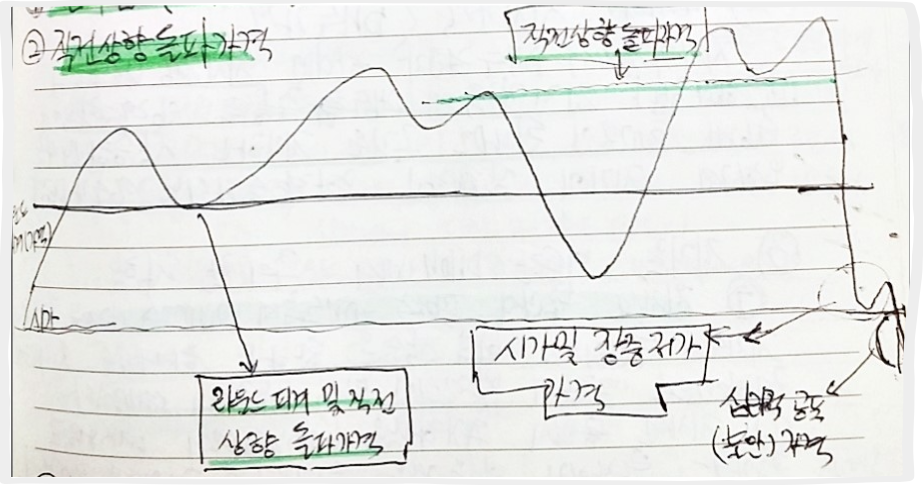 ② 직전상향 돌파가격
직전상향 돌파가격
시가
라운드 피겨 및 직전
상향 돌파가격
시가일 장중 저가
가격
심리적 공포
(불안) 가격